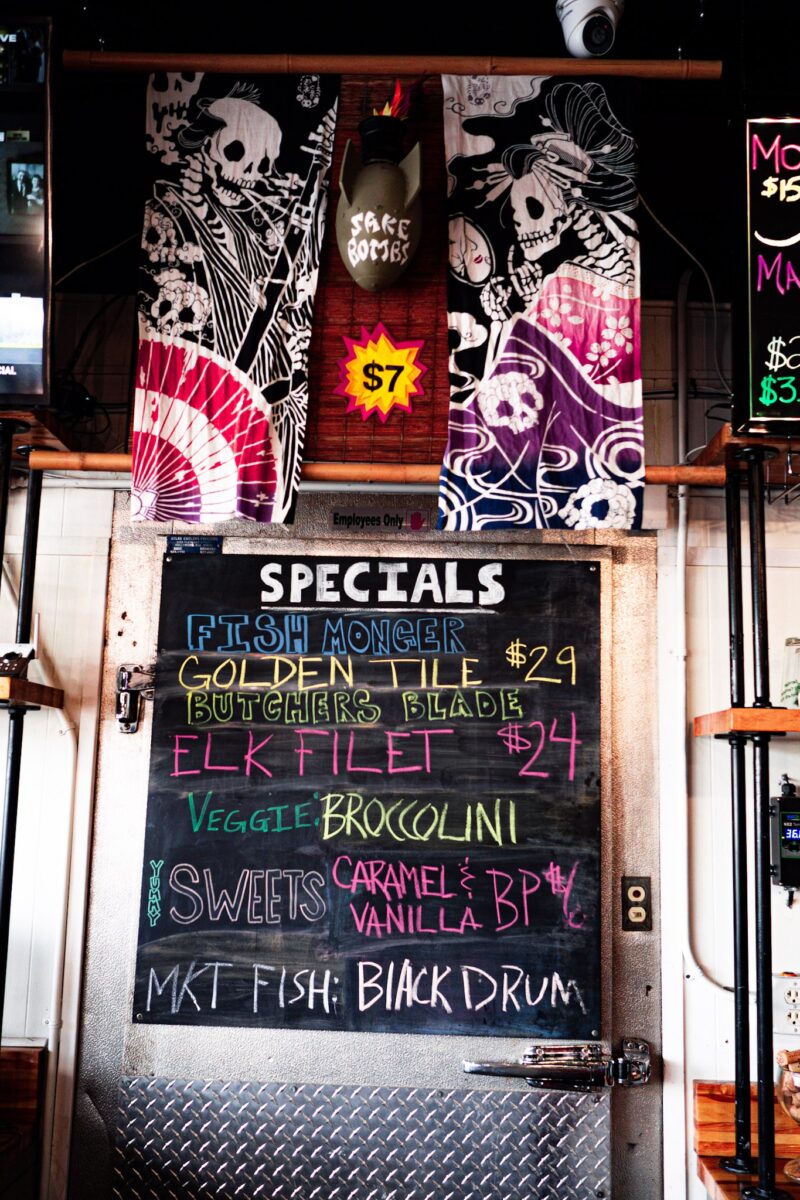 SAKE
BOMBS
$7
Employees Only
SPECIALS
FISH MONGER
GOLDEN TILE $29
BUTCHERS BLADE
ELK FILET $24
VEGGIE: BROCCOLINI
YUMMY
SWEETS
CARAMEL &
VANILLA
BP
MKT FISH: BLACK DRUM
MA